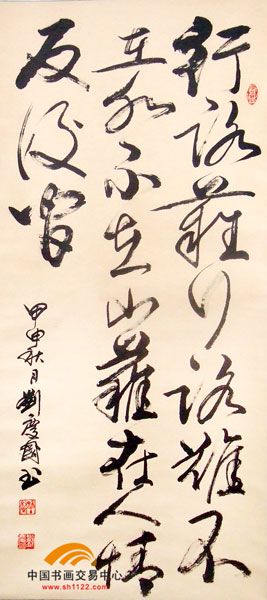 行路難行路難不
在水不在山難在人情
反復間
甲申秋月劉國书
中国书画交易中心
www.sh1122.com